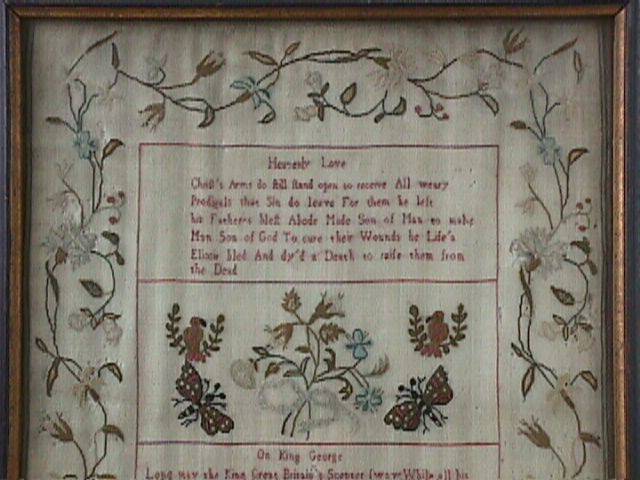 Heavenly Love
Christ's Arms do still stand open to receive All weary
Prodigals that Sin do leave For them he left
his Father's blest Abode Made Son of Man to make
Man Son of God To cure their Wounds he Life's
Elixir bled And dy'd a Death to raise them from
the Dead
On King George
Long may the King Great Britain's Scepter sway While all his